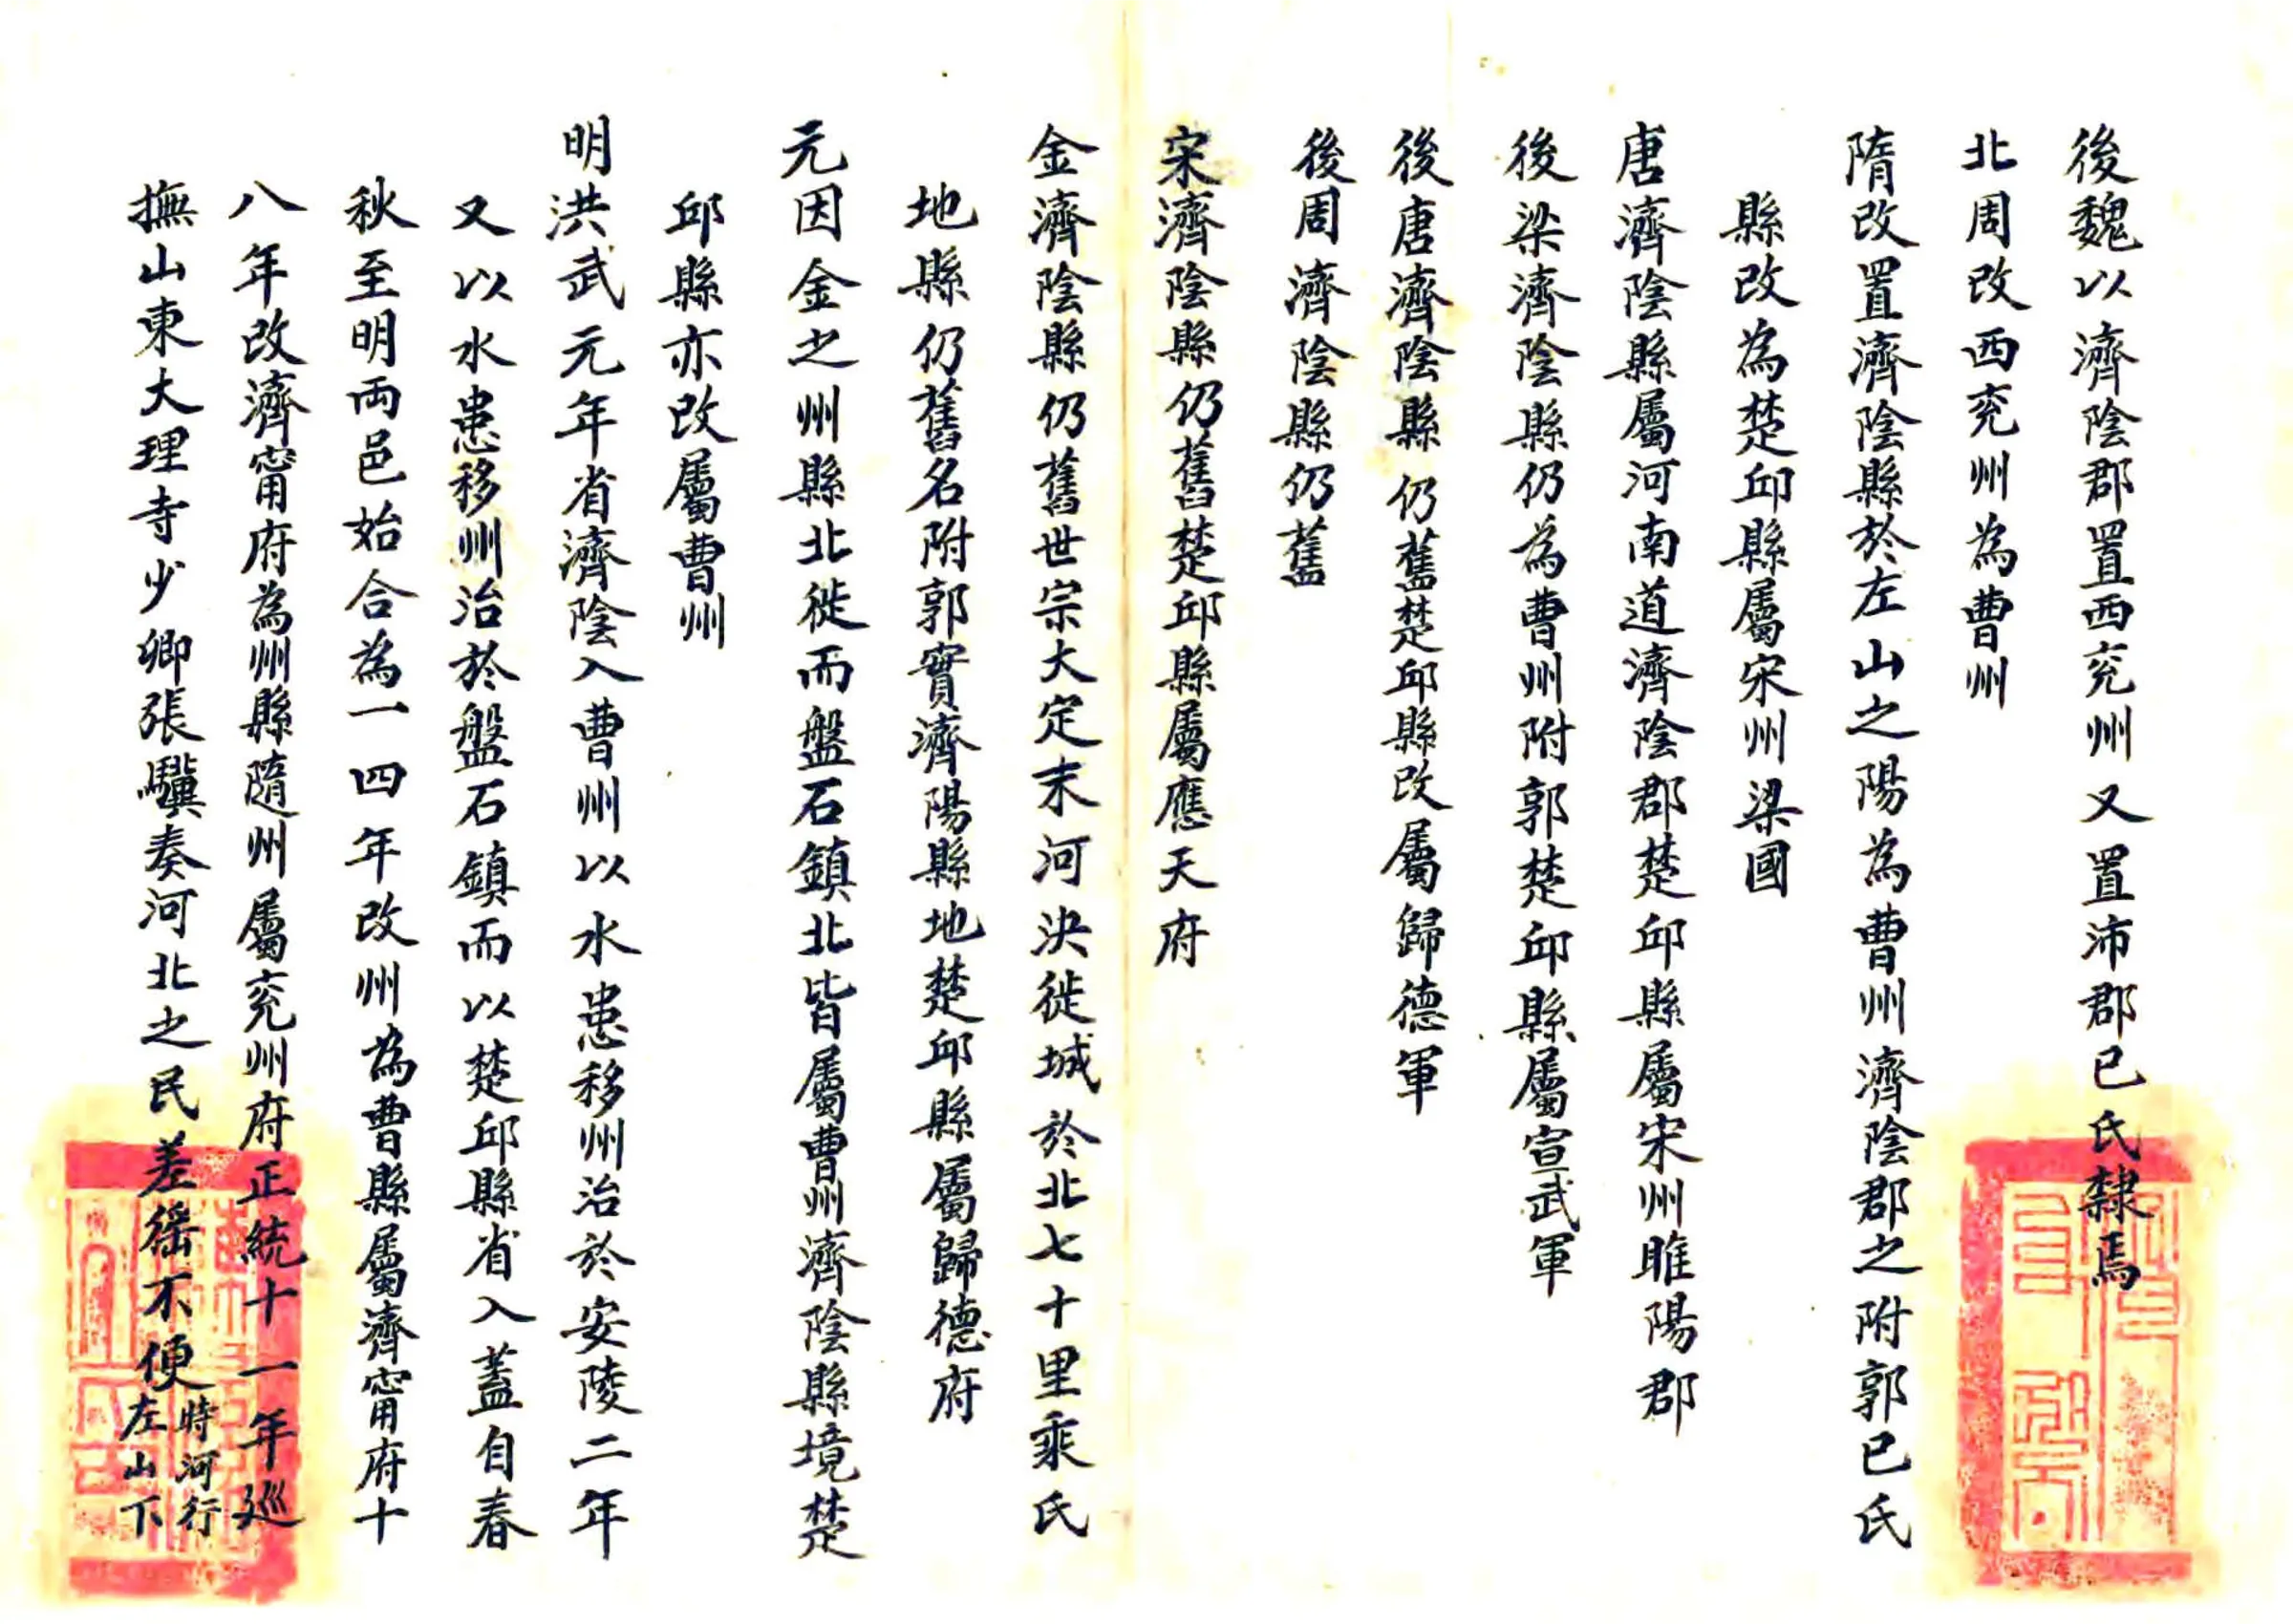 後魏以濟陰郡置西兖州又置沛郡已氏隸焉
北周改西兖州為曹州
隋改置濟陰縣於左山之陽為曹州濟陰郡之附郭已氏
縣改為楚邱縣屬宋州梁國
唐濟陰縣屬河南道濟陰郡楚邱縣屬宋州睢陽郡
後梁濟陰縣仍為曹州附郭楚邱縣屬宣武軍
後唐濟陰縣仍舊楚邱縣改屬歸德軍
後周濟陰縣仍舊
宋濟陰縣仍舊楚邱縣屬應天府
金濟陰縣仍舊世宗大定末河決徙城於北七十里乘氏
地縣仍舊名附郭實濟陽縣地楚邱縣屬歸德府
元因金之州縣北徙而盤石鎮北皆屬曹州濟陰縣境楚
邱縣亦改屬曹州
明洪武元年省濟陰入曹州以水患移州治於安陵二年
又以水患移州治於盤石鎮而以楚邱縣省入蓋自春
秋至明兩邑始合為一四年改州為曹縣屬濟甯府十
八年改濟甯府為州縣隨州屬兖州府正統十一年廵
撫山東大理寺少卿張驥奏河北之民差徭不便時河行
左山下